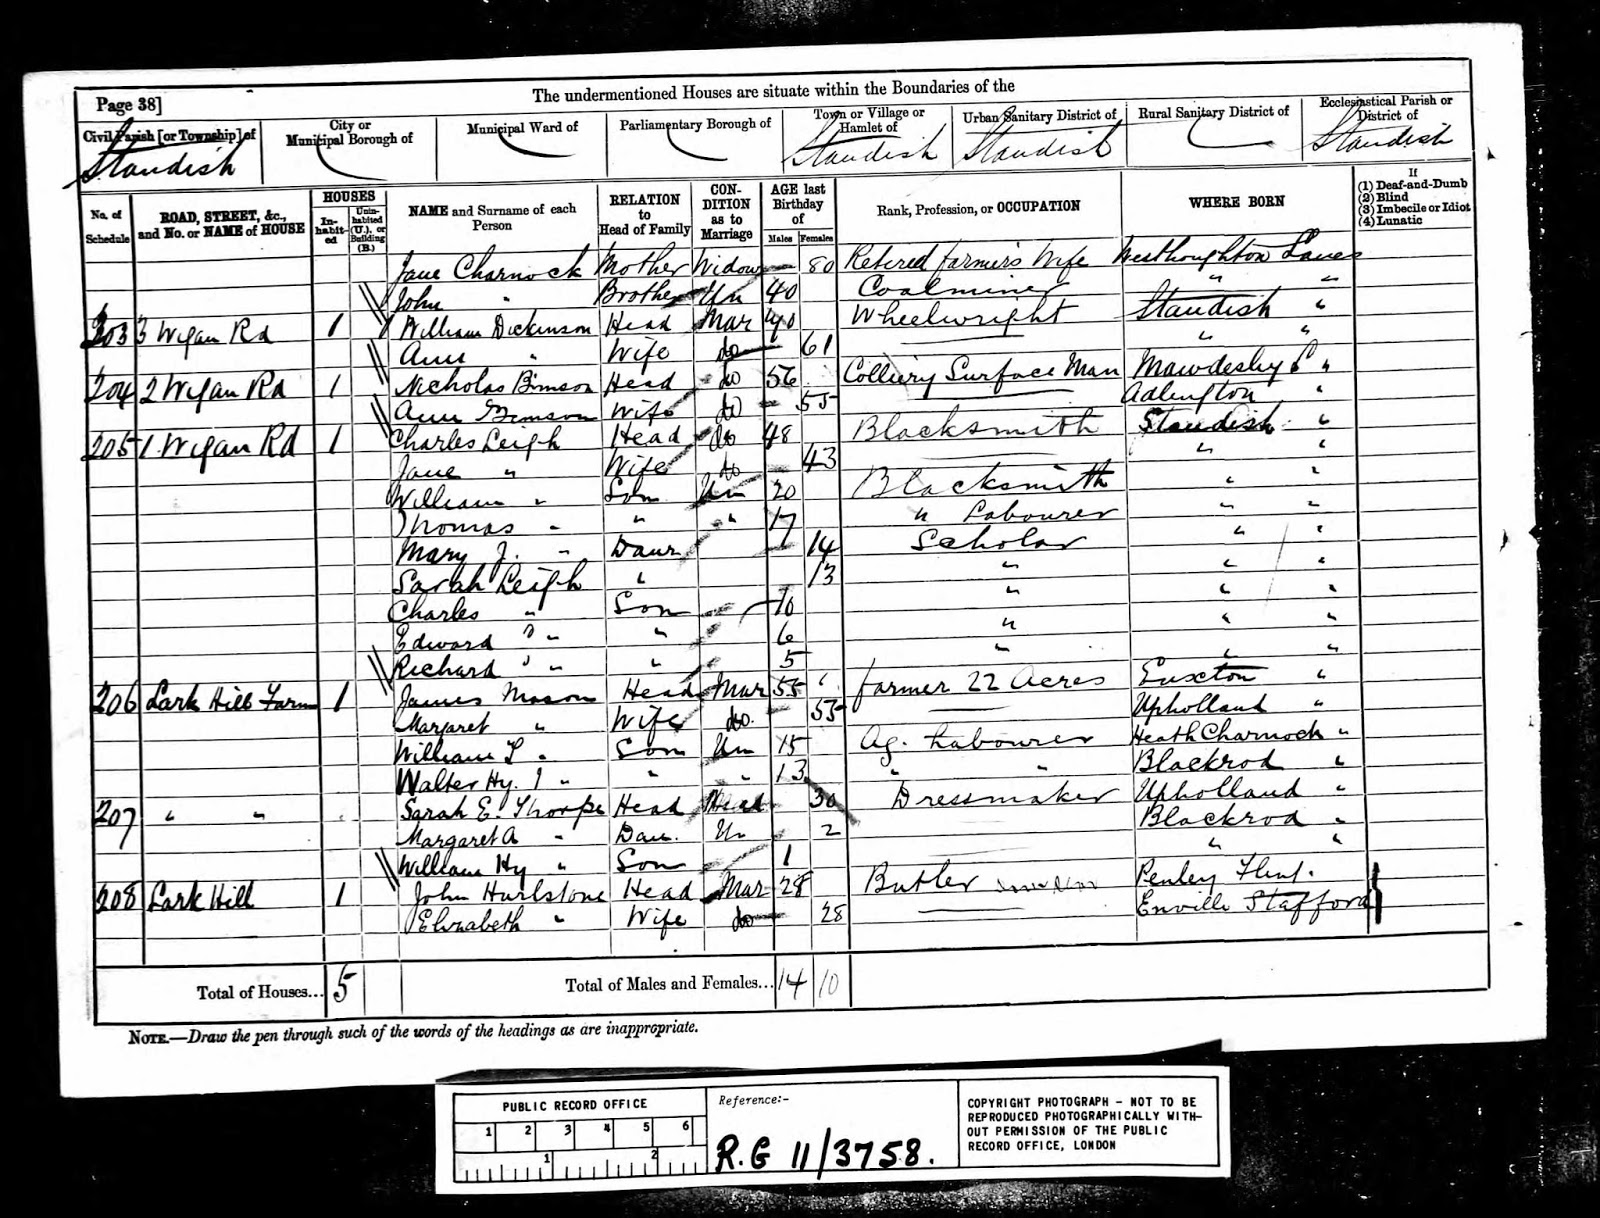 Page 38]
The undermentioned Houses are situate within the Boundaries of the
Civil Parish [or Township] of
Standish
City or
Municipal Borough of
Municipal Ward of
Parliamentary Borough of
Town or Village or
Hamlet of
Standish
Urban Sanitary District of
Standish
Rural Sanitary District of
Ecclesiastical Parish or
District of
Standish
No. of
Schedule
ROAD, STREET, &c.,
and No. or NAME of HOUSE
HOUSES
In-
habit-
ed
Unin-
habited
(U.), or
Building
(B.)
NAME and Surname of each
Person
RELATION
to
Head of Family
CON-
DITION
as to
Marriage
AGE last
Birthday
of
Males Females
Rank, Profession, or OCCUPATION
WHERE BORN
If
(1) Deaf-and-Dumb
(2) Blind
(3) Imbecile or Idiot
(4) Lunatic
Jane Charnock Mother Widow 80 Retired farmer's Wife Westhoughton Lancs
John " Brother Un 40 Coalminer " "
203 3 Wigan Rd 1 William Dickinson Head Mar Wheelwright Standish "
Ann " Wife do 61 " "
204 2 Wigan Rd 1 Nicholas Bimson Head do 56 Colliery Surface Man Mawdesley "
Ann Bimson Wife do 55 Adlington "
205 1 Wigan Rd 1 Charles Leigh Head do 48 Blacksmith Standish "
Jane " Wife do 43 " "
William " Son Un 20 Blacksmith " "
Thomas " " " 17 " Labourer " "
Mary J. " Daur 14 Scholar " "
Sarah Leigh " 13 " " "
Charles " Son 10 " " "
Edward " " 6 " " "
Richard " " 5 " " "
206 Lark Hill Farm 1 James Mason Head Mar 55 farmer 22 Acres Euxton "
Margaret " Wife do. 55 Upholland "
William T. " Son Un 15 Ag. Labourer Heath Charnock "
Walter Hy. " " " 13 " " Blackrod "
207 " " Sarah E. Thorpe Head Head 30 Dressmaker Upholland "
Margaret A " Dau. Un 2 Blackrod "
William Hy " Son 1 " "
208 Lark Hill 1 John Hurlstone Head Mar 28 Butler Penley Flint.
Elizabeth " Wife do 28 Enville Stafford
Total of Houses... 5
Total of Males and Females... 14 10
NOTE.—Draw the pen through such of the words of the headings as are inappropriate.
PUBLIC RECORD OFFICE
1 2 3 4 5 6
1 2
Reference:-
R.G 11/3758.
COPYRIGHT PHOTOGRAPH - NOT TO BE
REPRODUCED PHOTOGRAPHICALLY WITH-
OUT PERMISSION OF THE PUBLIC
RECORD OFFICE, LONDON